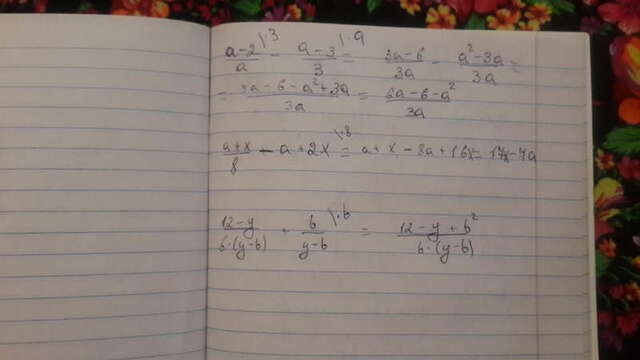 a-2/a \·3 - a-3/3 \·a = 3a-6/3a - a²-3a/3a =
= 3a-6-a²+3a/3a = 6a-6-a²/3a
a+x/8 - a+2x \·8 = a+x-8a+16x = 17x-7a
12-y/6·(y-6) + 6/y-6 \·6 = 12-y+6²/6·(y-6)